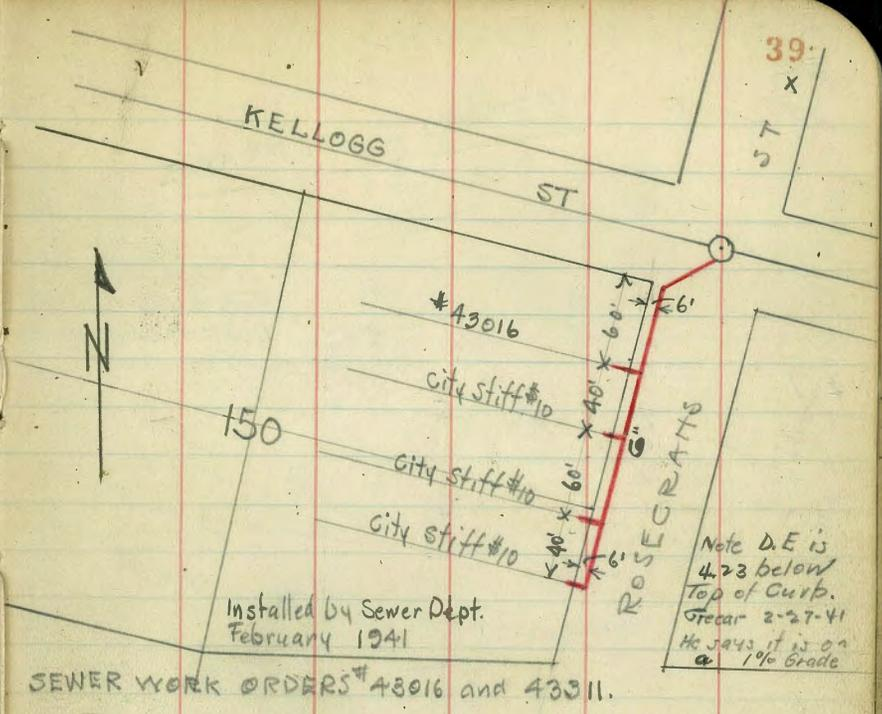 39
ST X
KELLOGG
ST
#43016
6'
60'
X
City Stiff #10
40'
X
6"
150
City Stiff #10
60'
X
City Stiff #10
40'
6'
ROSECRANS
N
Note D.E is
4.23 below
Top of Curb.
2-27-41
He says it is on
a 1% Grade
Installed by Sewer Dept.
February 1941
SEWER WORK ORDERS #43016 and 43311.